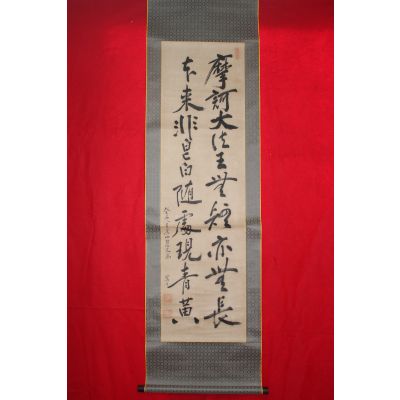 摩訶大法王無短亦無長
本来非皂白随處現青黄